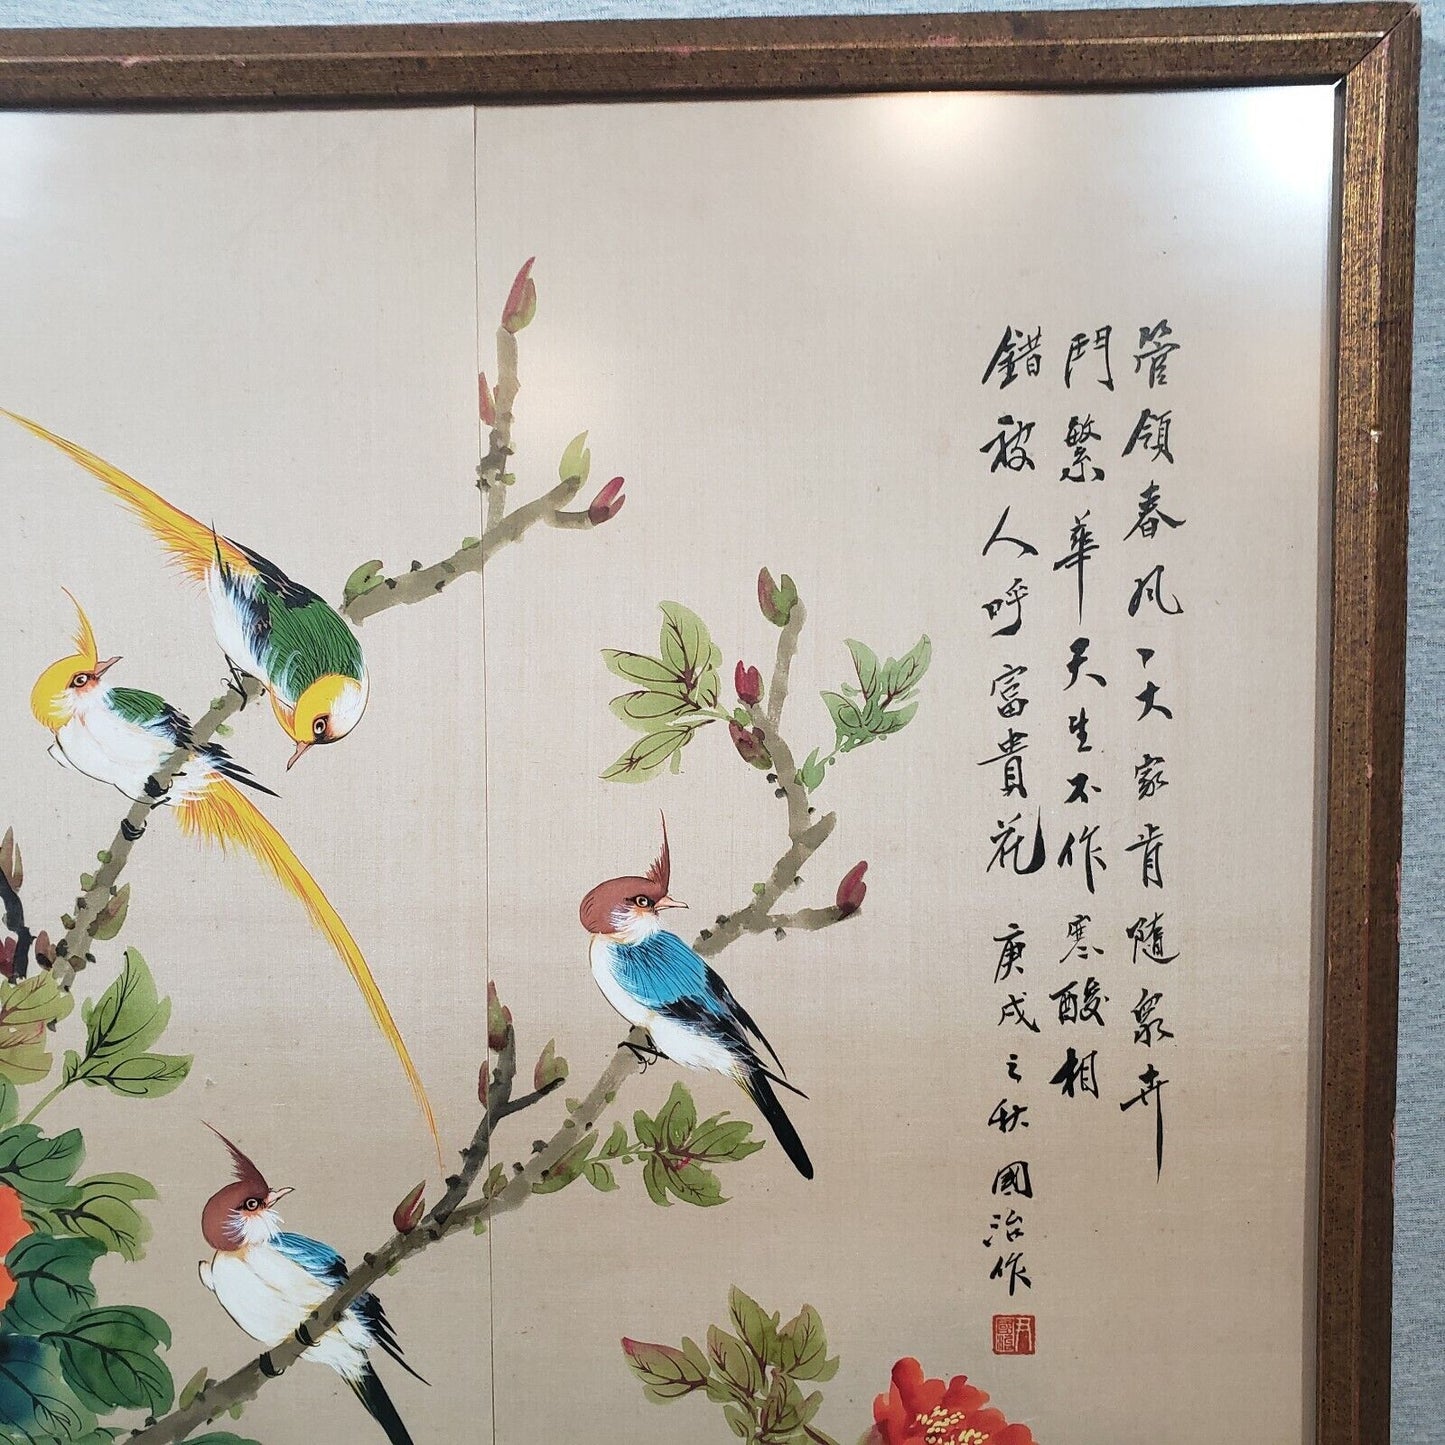 管領春風一大家肯隨衆卉
鬥繁華天生不作寒酸相
錯被人呼富貴花 庚戌之秋 國治作